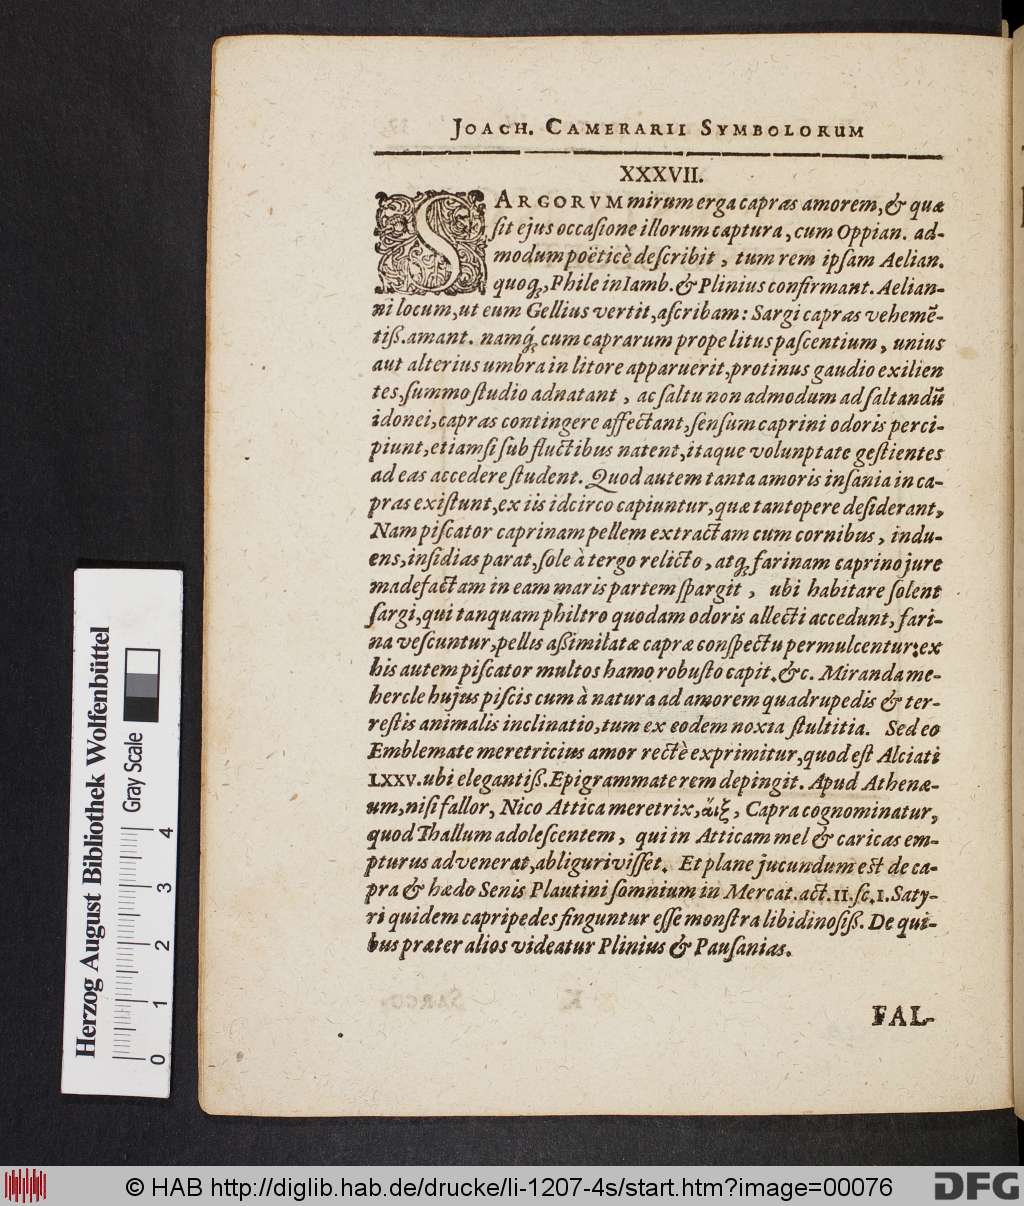 JOACH. CAMERARII SYMBOLORUM
XXXVII.
SARGORVM mirum erga capras amorem, & quæ
ſit ejus occaſione illorum captura, cum Oppian. ad-
modum poëticè deſcribit, tum rem ipſam Aelian.
quoq;, Phile in Iamb. & Plinius confirmant. Aelian-
ni locum, ut eum Gellius vertit, aſcribam: Sargi capras vehemē-
tiß. amant. namq́; cum caprarum prope litus paſcentium, unius
aut alterius umbra in litore apparuerit, protinus gaudio exilien
tes, ſummo ſtudio adnatant, ac ſaltu non admodum ad ſaltandū
idonei, capras contingere affectant, ſenſum caprini odoris perci-
piunt, etiamſi ſub fluctibus natent, itaque volunptate geſtientes
ad eas accedere ſtudent. Quod autem tanta amoris inſania in ca-
pras exiſtunt, ex iis idcirco capiuntur, quæ tantopere deſiderant,
Nam piſcator caprinam pellem extractam cum cornibus, indu-
ens, inſidias parat, ſole à tergo relicto, atq; farinam caprino jure
madefactam in eam maris partem ſpargit, ubi habitare ſolent
ſargi, qui tanquam philtro quodam odoris allecti accedunt, fari-
na veſcuntur, pellis aßimilatæ capræ conſpectu permulcentur: ex
his autem piſcator multos hamo robuſto capit. &c. Miranda me-
hercle hujus piſcis cum à natura ad amorem quadrupedis & ter-
reſtis animalis inclinatio, tum ex eodem noxia ſtultitia. Sed eo
Emblemate meretricius amor rectè exprimitur, quod eſt Alciati
LXXV. ubi elegantiß. Epigrammate rem depingit. Apud Athenæ-
um, niſi fallor, Nico Attica meretrix, ἄιξ, Capra cognominatur,
quod Thallum adoleſcentem, qui in Atticam mel & caricas em-
pturus advenerat, abligurivißet. Et plane jucundum eſt de ca-
pra & hædo Senis Plautini ſomnium in Mercat. act. II. ſc. I. Saty-
ri quidem capripedes finguntur eſſe monſtra libidinoſiß. De qui-
bus præter alios videatur Plinius & Pauſanias.
FAL-
Herzog August Bibliothek Wolfenbüttel
Gray Scale
0 1 2 3 4
© HAB http://diglib.hab.de/drucke/li-1207-4s/start.htm?image=00076
DFG